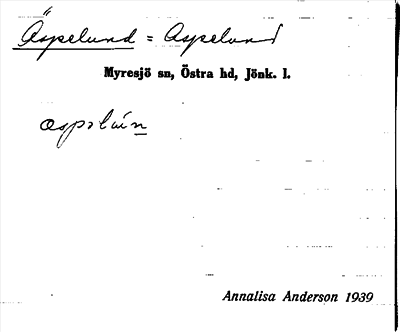 Äspelund = Aspelund
Myresjö sn, Östra hd, Jönk. l.
Annalisa Anderson 1939